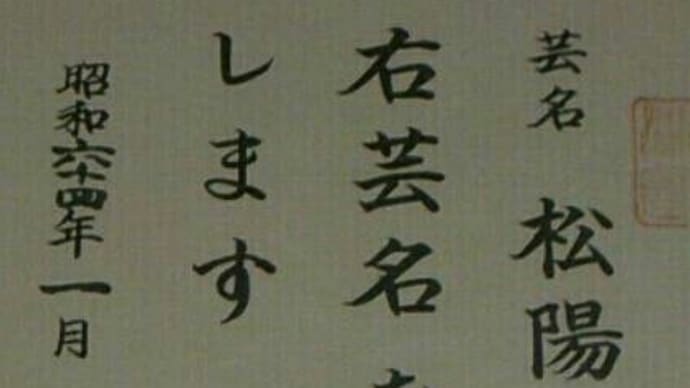 芸名 松陽
右芸名を
します
昭和六十四年一月